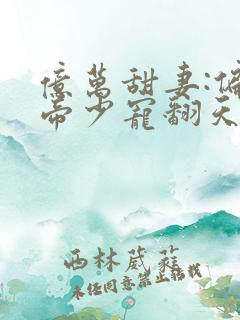 億萬甜妻:
帝少寵翻天
西林葳蕤
未經同意禁止轉載